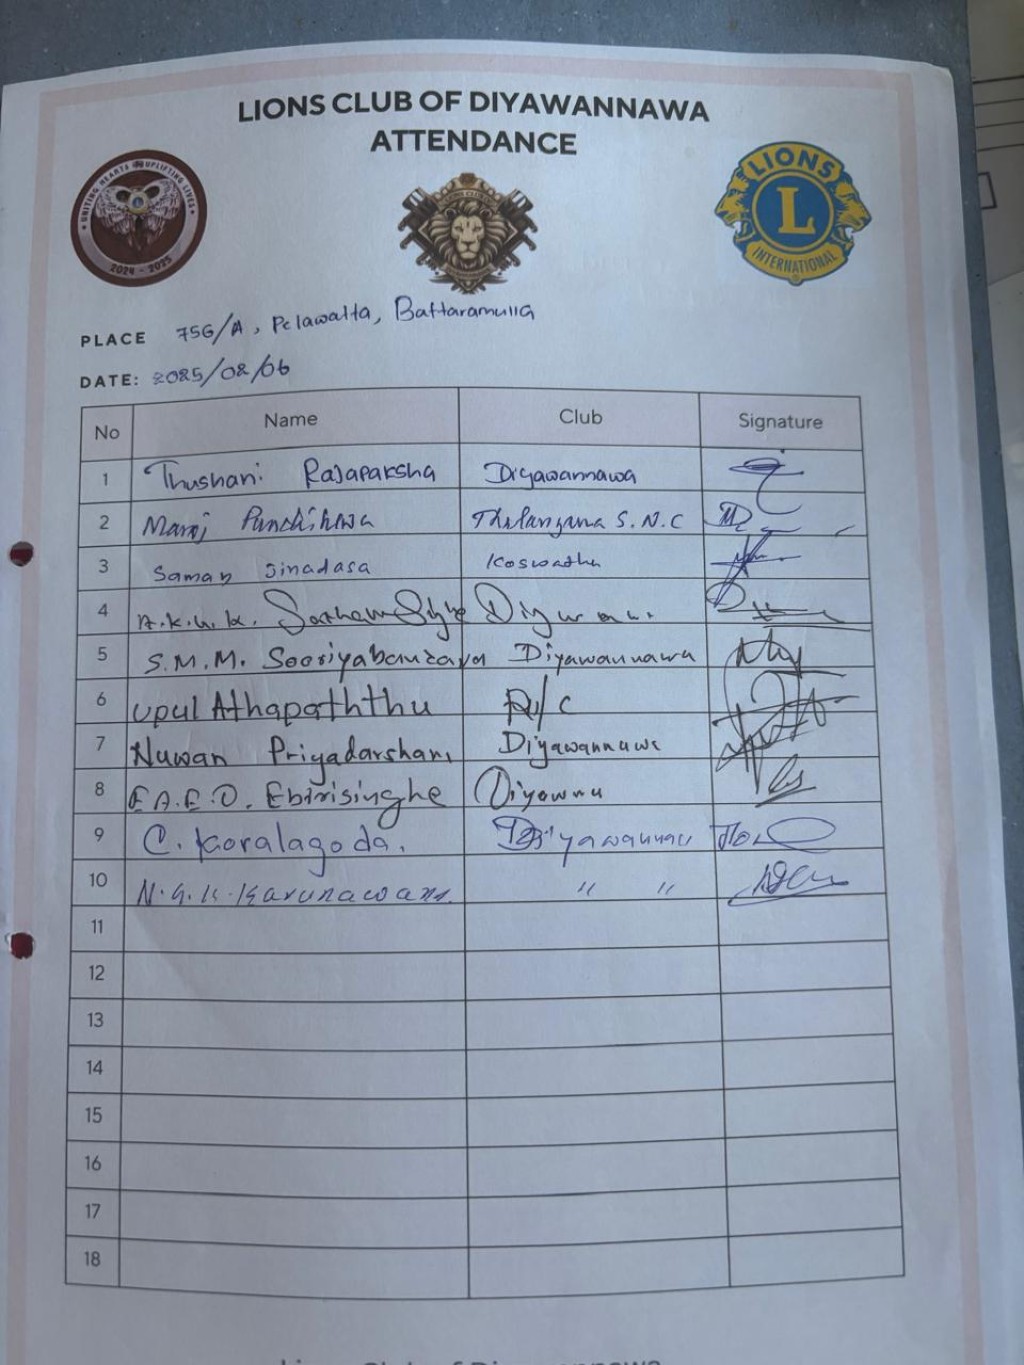 LIONS CLUB OF DIYAWANNAWA
ATTENDANCE
UNITING HEARTS UPLIFTING LIVES
2024 - 2025
LIONS
L
INTERNATIONAL
PLACE 756/A, Pelawatta, Battaramulla
DATE: 2025/02/06
No Name Club Signature
1 Thushari Rajapaksha Diyawannawa
2 Manoj Punchihewa Thalangana S.N.C
3 Saman Jinadasa Koswatha
4 A.K.U.K.
5 S.M.M. Sooriyabandara Diyawannawa
6 Upul Athapaththu R/C
7 Nuwan Priyadarshani Diyawannawa
8 E.A.E.D. Ebirisinghe
9 C. Koralagoda. Diyawannawa
10 N.G.K. Karunawans " "
11
12
13
14
15
16
17
18